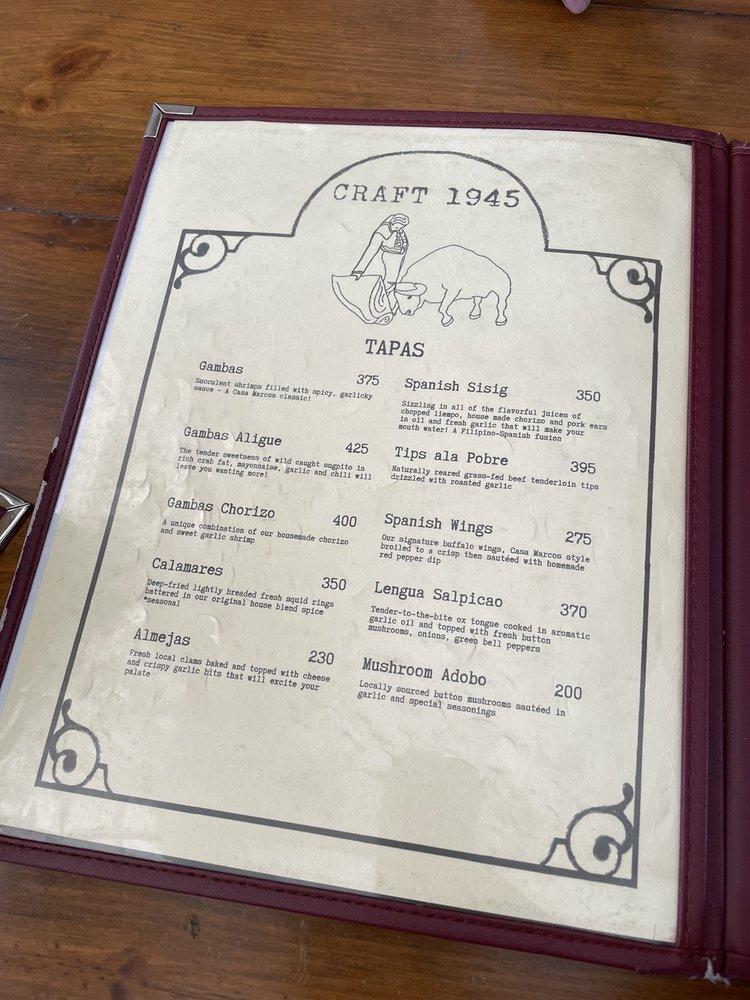 CRAFT 1945
TAPAS
Gambas 375
Succulent shrimps filled with spicy, garlicky
sauce - A Casa Marcos classic!
Gambas Aligue 425
The tender sweetness of wild caught sugpito in
rich crab fat, mayonnaise, garlic and chili will
leave you wanting more!
Gambas Chorizo 400
A unique combination of our housemade chorizo
and sweet garlic shrimp
Calamares 350
Deep-fried lightly breaded fresh squid rings
battered in our original house blend spice
*seasonal
Almejas 230
Fresh local clams baked and topped with cheese
and crispy garlic bits that will excite your
palate
Spanish Sisig 350
Sizzling in all of the flavorful juices of
chopped liempo, house made chorizo and pork ears
in oil and fresh garlic that will make your
mouth water! A Filipino-Spanish fusion
Tips ala Pobre 395
Naturally reared grass-fed beef tenderloin tips
drizzled with roasted garlic
Spanish Wings 275
Our signature buffalo wings, Casa Marcos style
broiled to a crisp then sautéed with homemade
red pepper dip
Lengua Salpicao 370
Tender-to-the-bite ox tongue cooked in aromatic
garlic oil and topped with fresh button
mushrooms, onions, green bell peppers
Mushroom Adobo 200
Locally sourced button mushrooms sautéed in
garlic and special seasonings